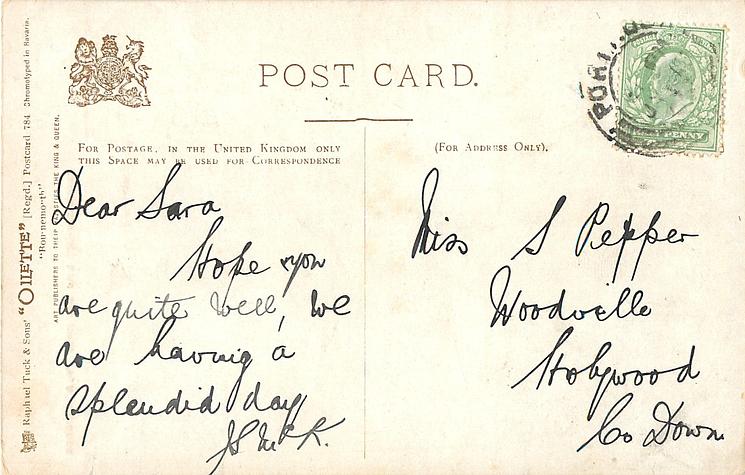 POST CARD.
FOR POSTAGE, IN THE UNITED KINGDOM ONLY
THIS SPACE MAY BE USED FOR CORRESPONDENCE
(FOR ADDRESS ONLY).
Dear Sara
Hope you
are quite well, we
are having a
splendid day
JS McK.
Miss S Pepper
Woodville
Holywood
Co Down
Raphael Tuck & Sons' "OILETTE" [Regd.] Postcard 784. Chromotyped in Bavaria.
ART PUBLISHERS TO THEIR MAJESTIES THE KING & QUEEN.
PENNY